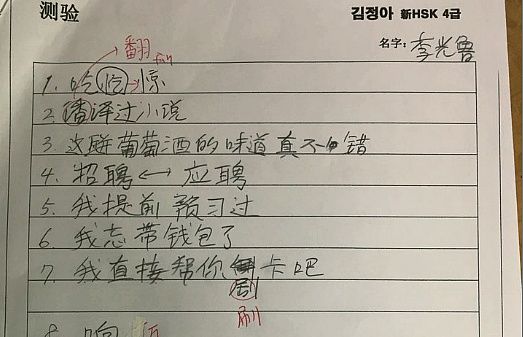 测验
김정아 新HSK 4급
名字: 李光鲁
翻 fān
1. 吃惊
2. 潘译过小说
3. 这瓶葡萄酒的味道真不错
4. 招聘 ←→ 应聘
5. 我提前预习过
6. 我忘带钱包了
7. 我直接帮你刷卡吧
刷
8. 响